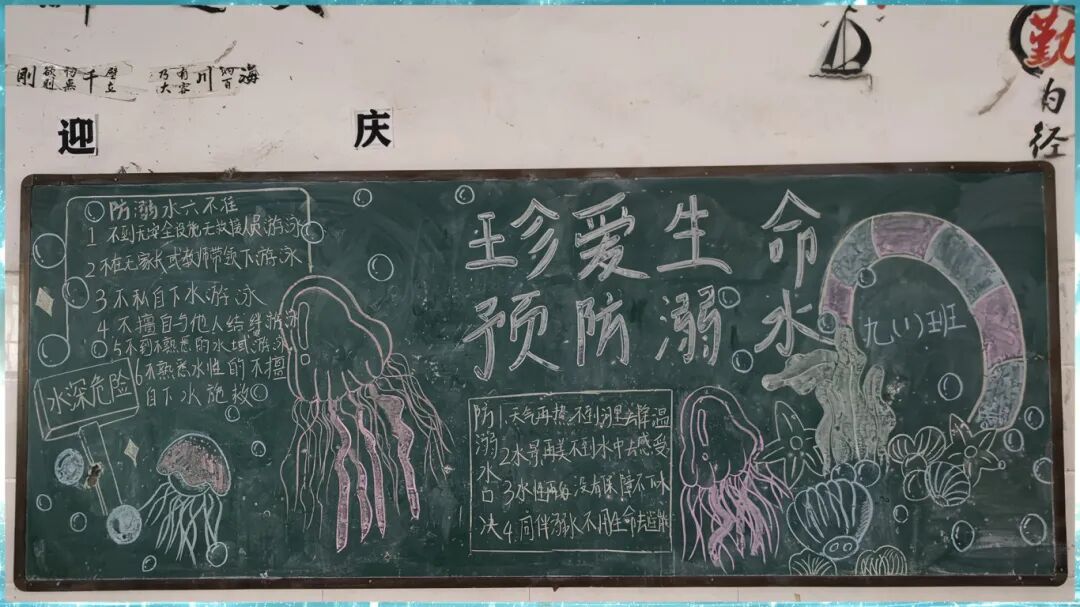 海纳百川 有容乃大
壁立千仞 无欲则刚
迎
庆
勤
为
径
珍爱生命
预防溺水
九(1)班
防溺水六不准
1 不到无安全设施无救援人员游泳
2 不在无家长或教师带领下游泳
3 不私自下水游泳
4 不擅自与他人结伴游泳
5 不到不熟悉的水域游泳
6 不熟悉水性的不擅
自下水施救
水深危险
防溺水口决
1. 天气再热不到河里去降温
2 水景再美不到水中去感受
3 水性再好 没有保障不下水
4. 同伴溺水不用生命去逞能